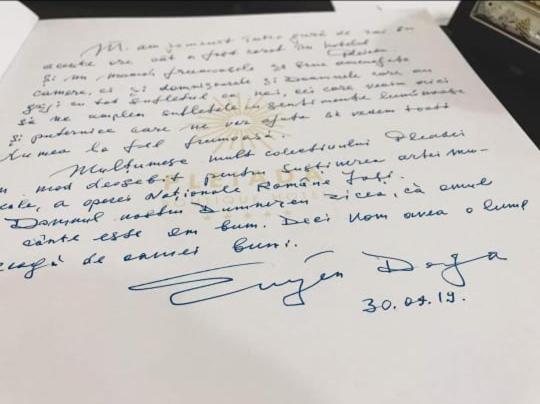 M. am pomenit într-o gură de rai în
aceste ore cât a fost cazat în hotelul Pleiada
și nu numai frumoasele și bine amenajate
camere, ci și domnișoarele și Doamnele care au
grijă cu tot sufletul ca noi, cei care venim aici
să ne umplem sufletele cu sentimente luminoase
și puternice care ne vor ajuta să vedem toată
lumea la fel frumoasă.
Mulțumesc mult colectivului Pleadei
mod deosebit pentru susținerea artei mu-
cale, a operei Naționale Române Iași.
Domnul nostru Dumnezeu zicea, că omul
cânte este om bun. Deci vom avea o lume
eagă de oameni buni.
PLEIADA
BOUTIQUE
Eugen Doga
30.09.19.